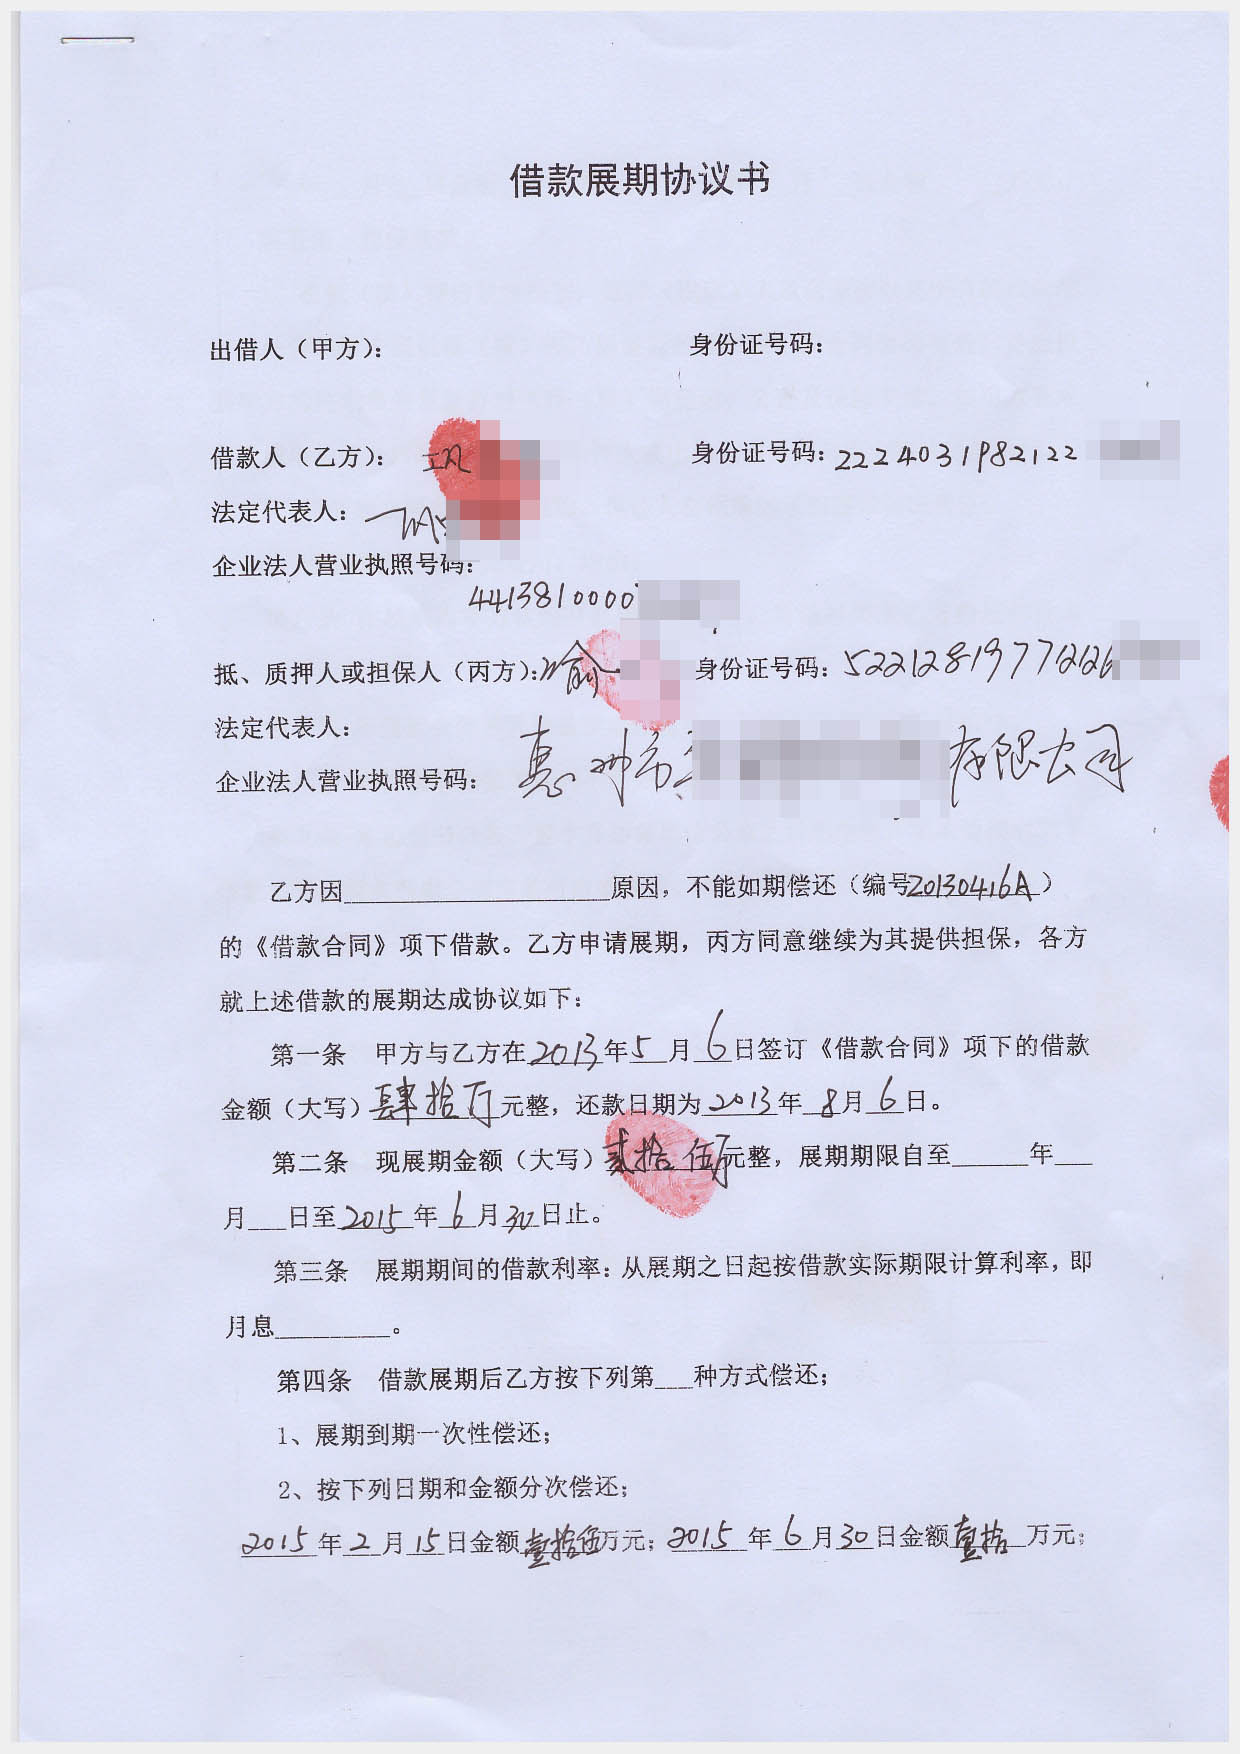 借款展期协议书
出借人（甲方）： 身份证号码：
借款人（乙方）： 身份证号码：2224031982122
法定代表人：
企业法人营业执照号码：
4413810000
抵、质押人或担保人（丙方）： 身份证号码：522128197712126
法定代表人：
惠州市 有限公司
企业法人营业执照号码：
乙方因____________________原因，不能如期偿还（编号20130416A）
的《借款合同》项下借款。乙方申请展期，丙方同意继续为其提供担保，各方
就上述借款的展期达成协议如下：
第一条 甲方与乙方在2013年5月6日签订《借款合同》项下的借款
金额（大写）肆拾万元整，还款日期为2013年8月6日。
第二条 现展期金额（大写）贰拾伍万元整，展期期限自至______年___
月___日至2015年6月30日止。
第三条 展期期间的借款利率：从展期之日起按借款实际期限计算利率，即
月息_________。
第四条 借款展期后乙方按下列第___种方式偿还；
1、展期到期一次性偿还；
2、按下列日期和金额分次偿还；
2015年2月15日金额壹拾伍万元；2015年6月30日金额壹拾万元；